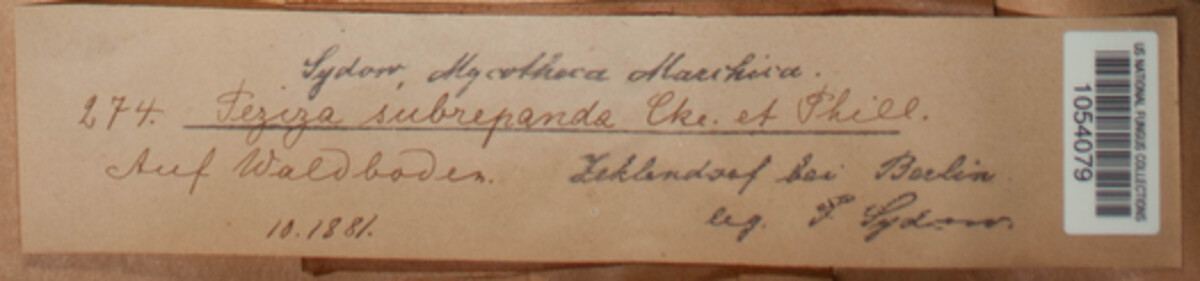 Sydow, Mycotheca Marchica.
274. Peziza subrepanda Cke. et Phill.
Auf Waldboden. Zehlendorf bei Berlin
10.1881. leg. P Sydow.
US NATIONAL FUNGUS COLLECTIONS
1054079